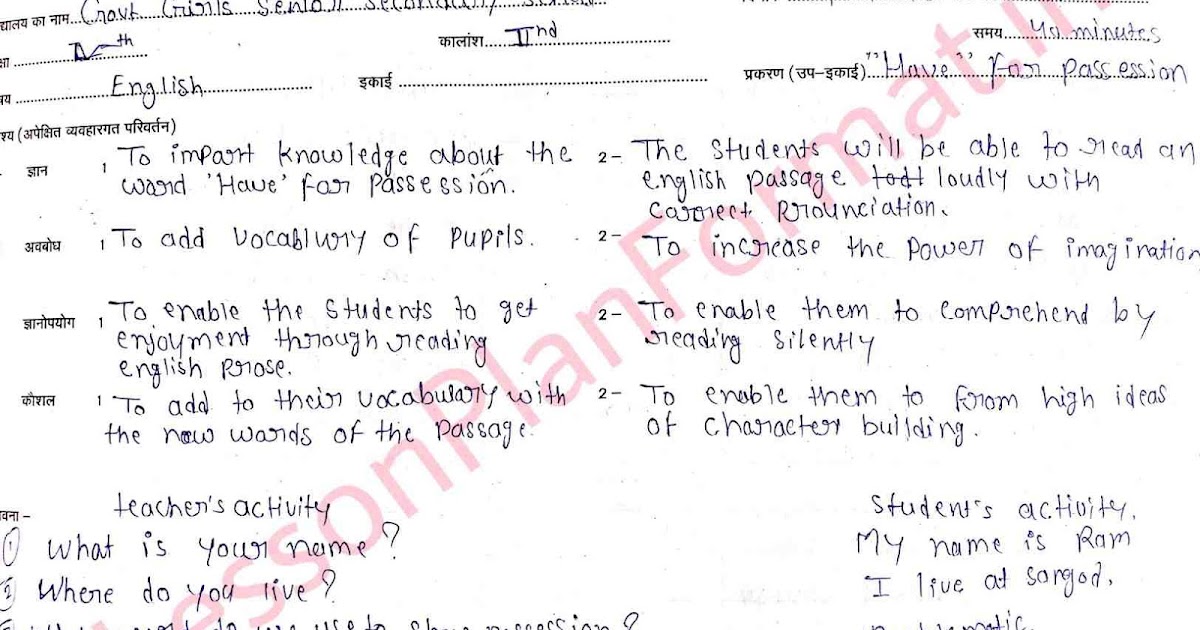 द्यालय का नाम... Govt Girls Senior Secondary
IV th कालांश.... II nd समय.... 40 minutes
English इकाई प्रकरण (उप-इकाई) "Have" for passession
श्य (अपेक्षित व्यवहारगत परिवर्तन)
ज्ञान 1 To impart knowledge about the word 'Have' for Passession.
2- The students will be able to read an english passage loudly with correct Prounciation.
अवबोध 1 To add vocabluury of Pupils.
2- To increase the Power of imagination
ज्ञानोपयोग 1 To enable the students to get enjoyment through reading english Prose.
2- To enable them to comprehend by reading silently
कौशल 1 To add to their vocabulary with the new words of the Passage.
2- To enable them to from high ideas of character building.
वना - teacher's activity student's activity.
1 What is your name? My name is Ram
2 Where do you live? I live at sangod.
LessonPlanFormat.In